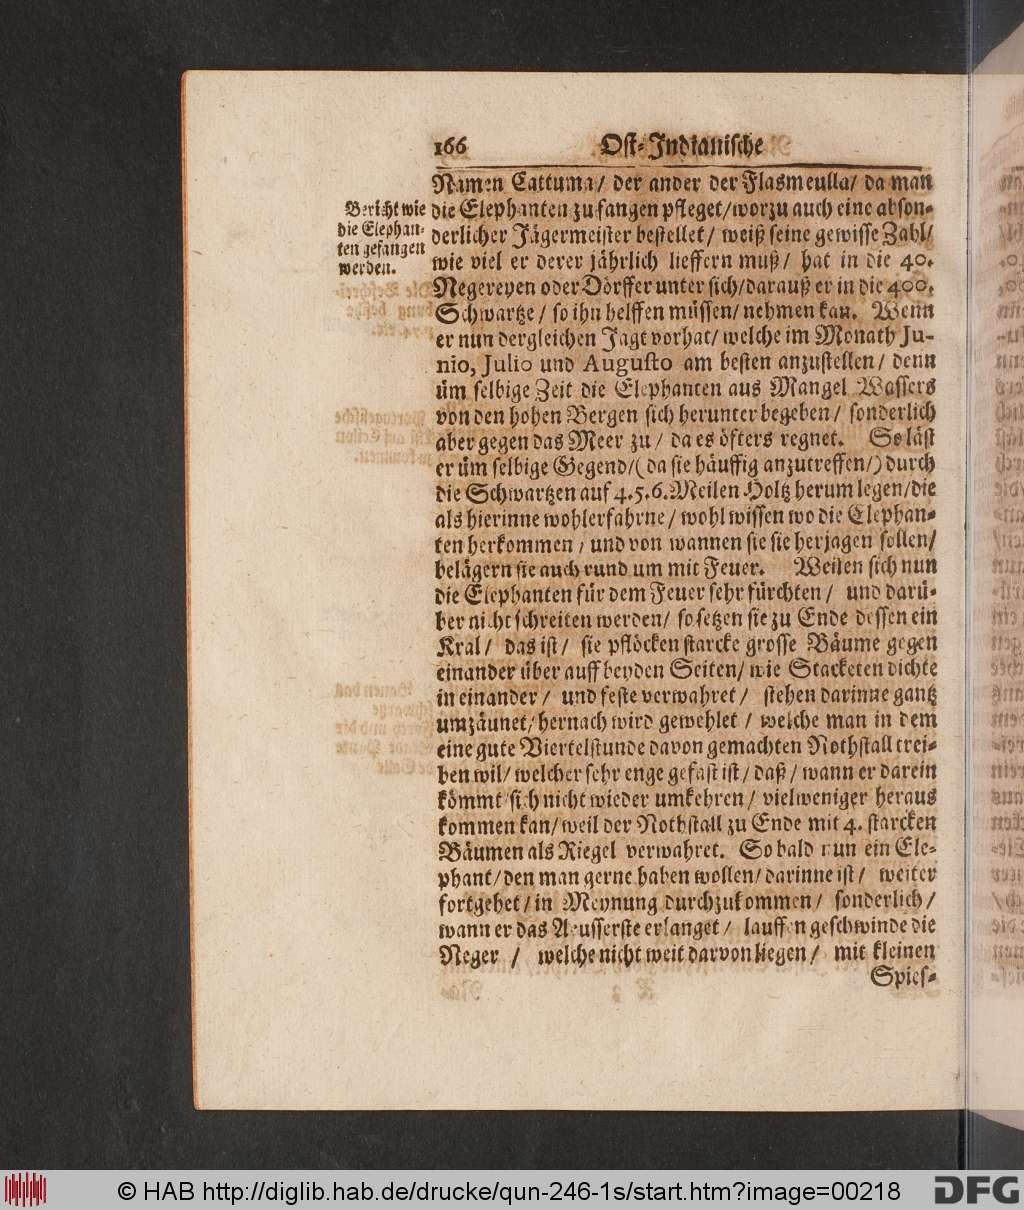 166 Ost-Indianische
Namen Cattuma/ der ander der Flasmeulla/ da man
die Elephanten zu fangen pfleget/ worzu auch eine abson-
derlicher Jägermeister bestellet/ weiß seine gewisse Zahl/
wie viel er derer jährlich lieffern muß/ hat in die 40.
Negereyen oder Dörffer unter sich/ darauß er in die 400.
Schwartze/ so ihn helffen müssen/ nehmen kan. Wenn
er nun dergleichen Jagt vorhat/ welche im Monath Ju-
nio, Julio und Augusto am besten anzustellen/ denn
üm selbige Zeit die Elephanten aus Mangel Wassers
von den hohen Bergen sich herunter begeben/ sonderlich
aber gegen das Meer zu/ da es öfters regnet. So läst
er üm selbige Gegend/ (da sie häuffig anzutreffen/) durch
die Schwartzen auf 4. 5. 6. Meilen Holtz herum legen/ die
als hierinne wohlerfahrne/ wohl wissen wo die Elephan-
ten herkommen/ und von wannen sie sie herjagen sollen/
belägern sie auch rund um mit Feuer. Weilen sich nun
die Elephanten für dem Feuer sehr fürchten/ und darü-
ber nicht schreiten werden/ so setzen sie zu Ende dessen ein
Kral/ das ist/ sie pflöcken starcke grosse Bäume gegen
einander über auff beyden Seiten/ wie Stacketen dichte
in einander/ und feste verwahret/ stehen darinne gantz
umzäunet/ hernach wird gewehlet/ welche man in dem
eine gute Viertelstunde davon gemachten Nothstall trei-
ben wil/ welcher sehr enge gefast ist/ daß/ wann er darein
kömmt sich nicht wieder umkehren/ vielweniger heraus
kommen kan/ weil der Nothstall zu Ende mit 4. starcken
Bäumen als Riegel verwahret. So bald nun ein Ele-
phant/ den man gerne haben wollen/ darinne ist/ weiter
fortgehet/ in Meynung durchzukommen/ sonderlich/
wann er das Aeusserste erlanget/ lauffen geschwinde die
Neger/ welche nicht weit darvon liegen/ mit kleinen
Spies-
Bericht wie
die Elephan-
ten gefangen
werden.
© HAB http://diglib.hab.de/drucke/qun-246-1s/start.htm?image=00218
DFG